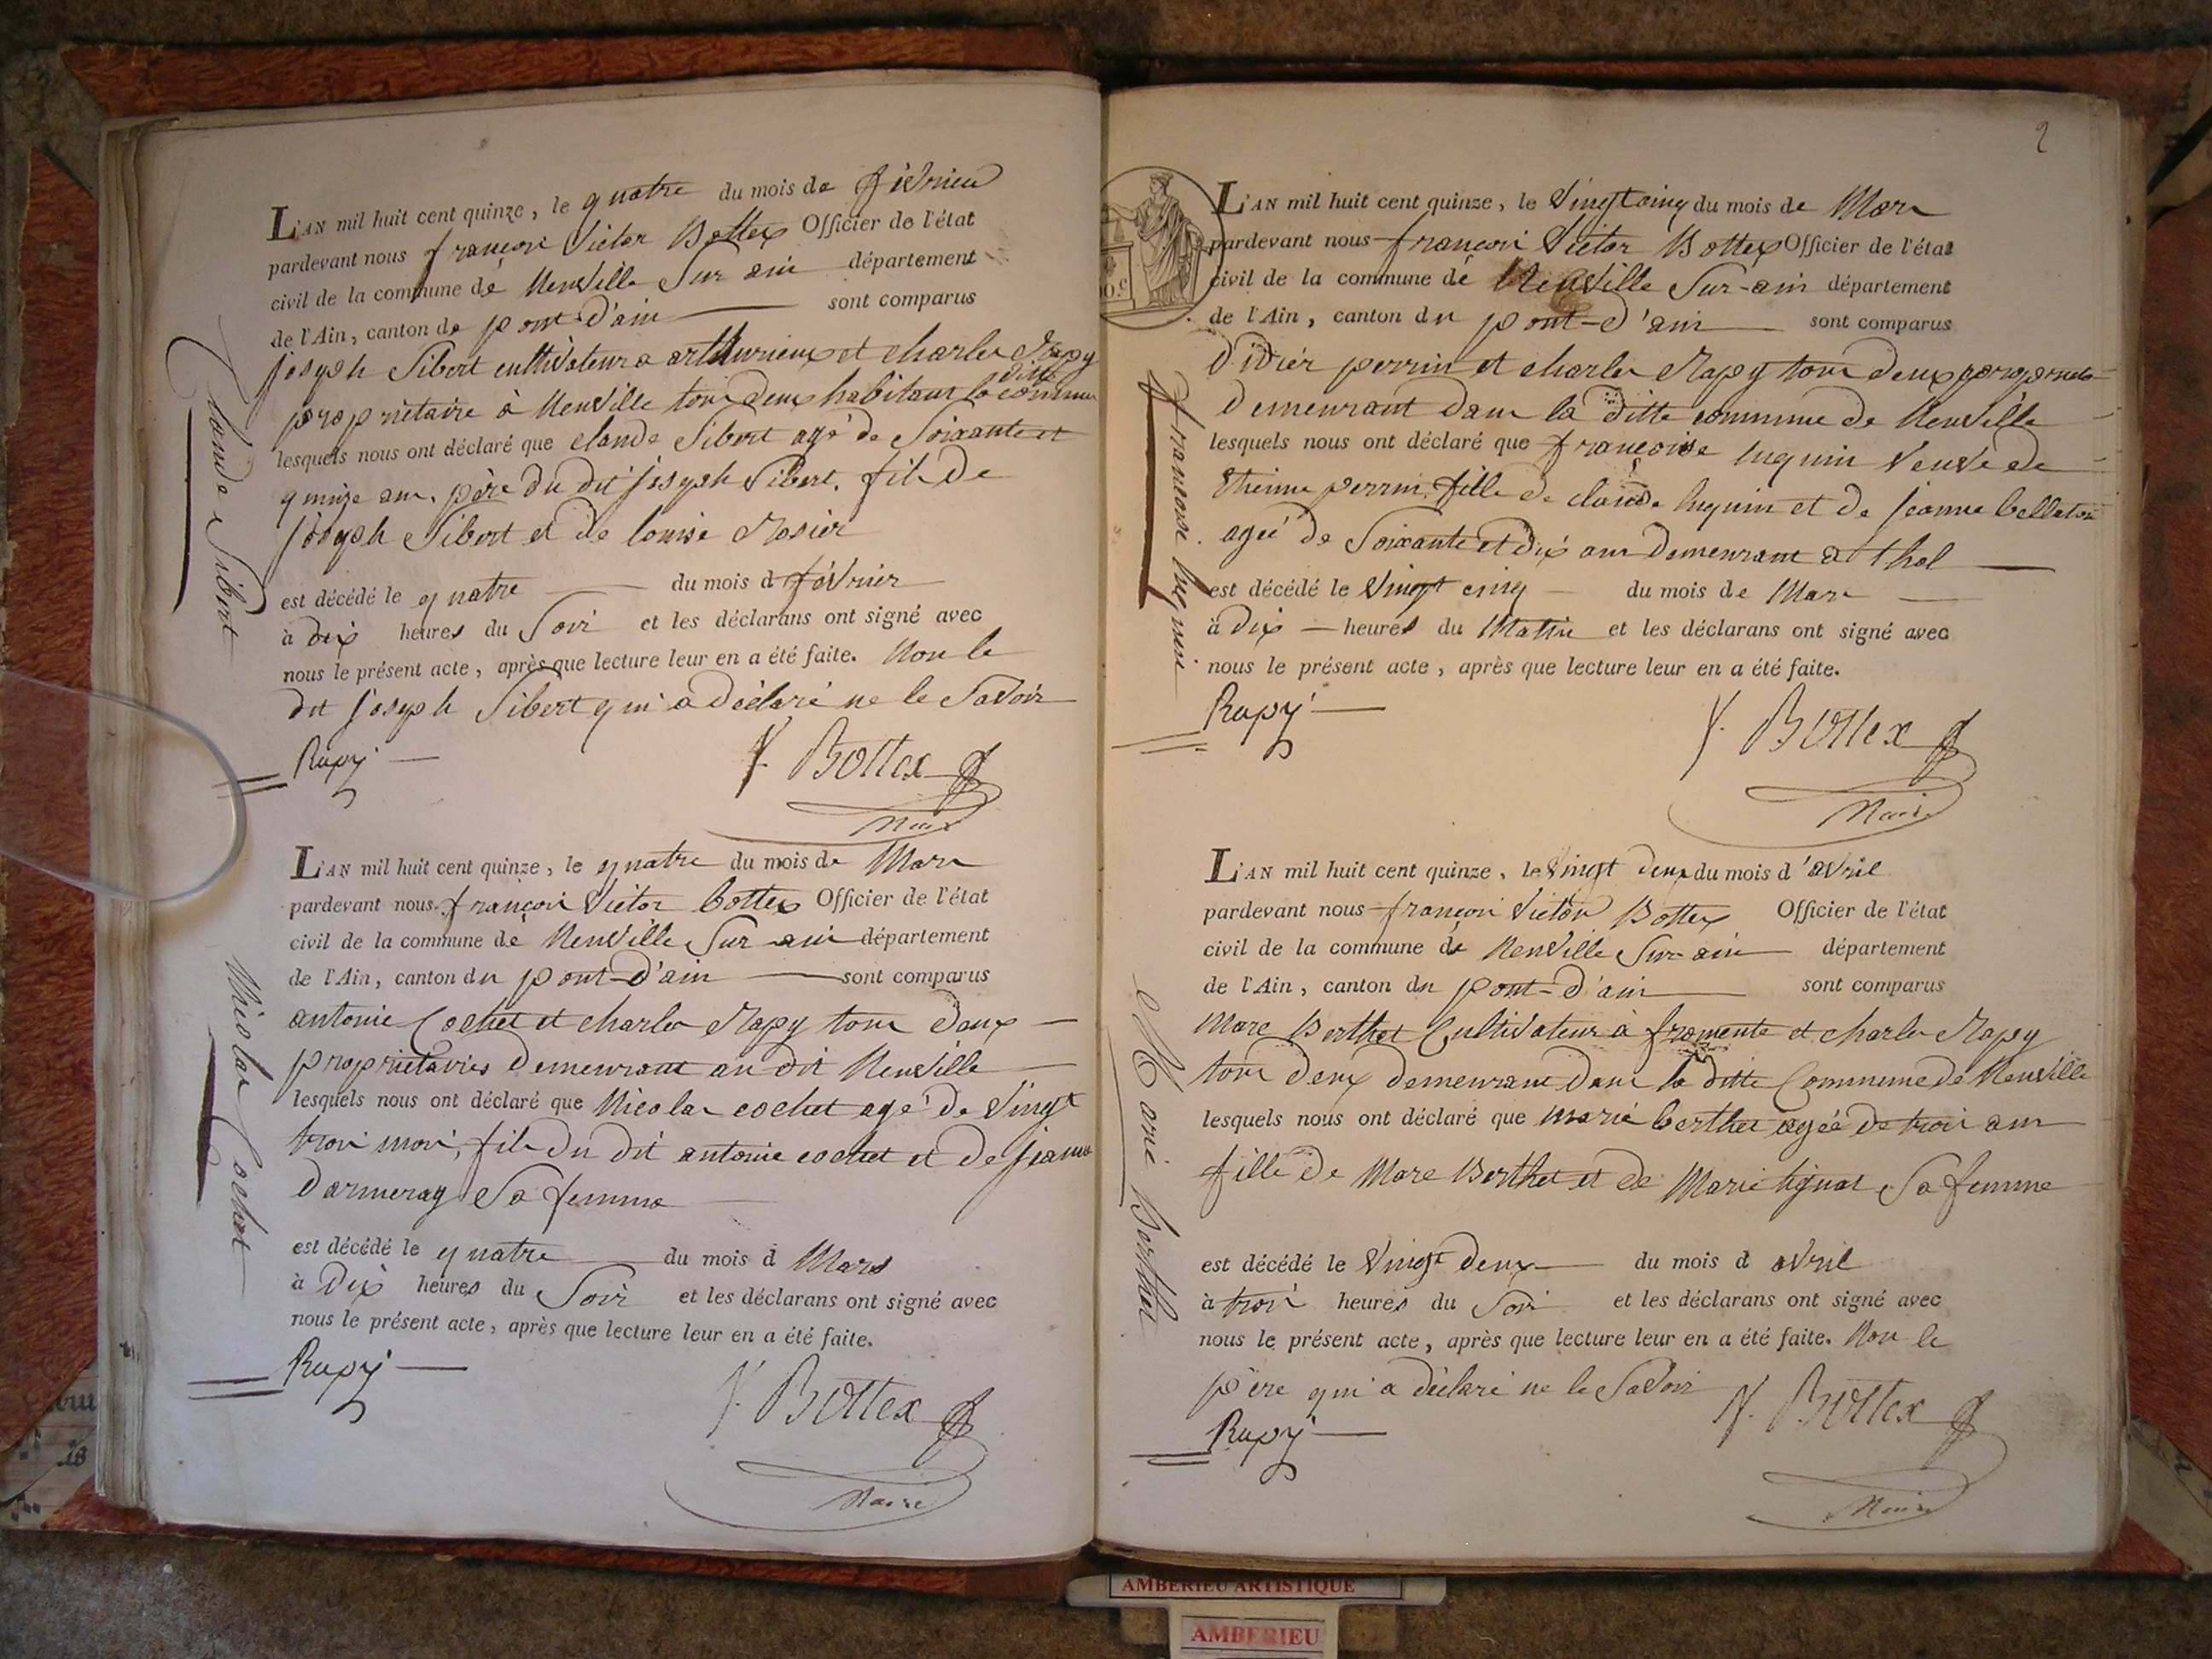 Claude Sibert
L'AN mil huit cent quinze, le quatre du mois de février
pardevant nous françois Victor Bottex Officier de l'état
civil de la commune de Neuville Sur ain département
de l'Ain, canton de pont d'ain sont comparus
joseph Sibert cultivateur a arthurieux et charles Rapy
propriétaire à Neuville tous deux habitans la ditte commune
lesquels nous ont déclaré que claude Sibert agé de Soixante et
quinze ans, père du dit joseph Sibert, fils de
joseph Sibert et de louise Rosier
est décédé le quatre du mois d février
à dix heures du Soir et les déclarans ont signé avec
nous le présent acte, après que lecture leur en a été faite. Non le
dit joseph Sibert qui a déclaré ne le Savoir
Rapy
V. Bottex
Maire
Nicolas Cochet
L'AN mil huit cent quinze, le quatre du mois de Mars
pardevant nous françois Victor bottex Officier de l'état
civil de la commune de Neuville Sur ain département
de l'Ain, canton du pont-d'ain sont comparus
antoine Cochet et charles Rapy tous deux
propriétaires Demeurant au dit Neuville
lesquels nous ont déclaré que Nicolas cochet agé de Vingt
trois mois, fils du dit antoine cochet et de jeanne
darmeray Sa femme
est décédé le quatre du mois d Mars
à Dix heures du Soir et les déclarans ont signé avec
nous le présent acte, après que lecture leur en a été faite.
Rapy
V. Bottex
Maire
2
francoise
L'AN mil huit cent quinze, le Vingt cinq du mois de Mars
pardevant nous françois Victor Bottex Officier de l'état
civil de la commune de Neuville Sur-ain département
de l'Ain, canton du pont-d'ain sont comparus
Didier perrin et charles Rapy tous deux
Demeurant dans la ditte commune de Neuville
lesquels nous ont déclaré que françoise Veuve de
Etienne perrin, fille de claude et de jeanne bellaton
agée de Soixante et dix ans demeurant a thol
est décédé le Vingt cinq du mois de Mars
à dix heures du Matin et les déclarans ont signé avec
nous le présent acte, après que lecture leur en a été faite.
Rapy
V. Bottex
Maire
Marie Berthet
L'AN mil huit cent quinze, le Vingt deux du mois d'avril
pardevant nous françois Victor Bottex Officier de l'état
civil de la commune de Neuville Sur ain département
de l'Ain, canton du pont-d'ain sont comparus
Marc Berthet Cultivateur à fromente et charles Rapy
tous deux demeurant dans la ditte Commune de Neuville
lesquels nous ont déclaré que marie berthet agée de trois ans
fille de Marc Berthet et de Marie tignat Sa femme
est décédé le Vingt deux du mois d avril
à trois heures du Soir et les déclarans ont signé avec
nous le présent acte, après que lecture leur en a été faite. Non le
père qui a déclaré ne le Savoir
Rapy
V. Bottex
Maire
AMBERIEU ARTISTIQUE
AMBERIEU